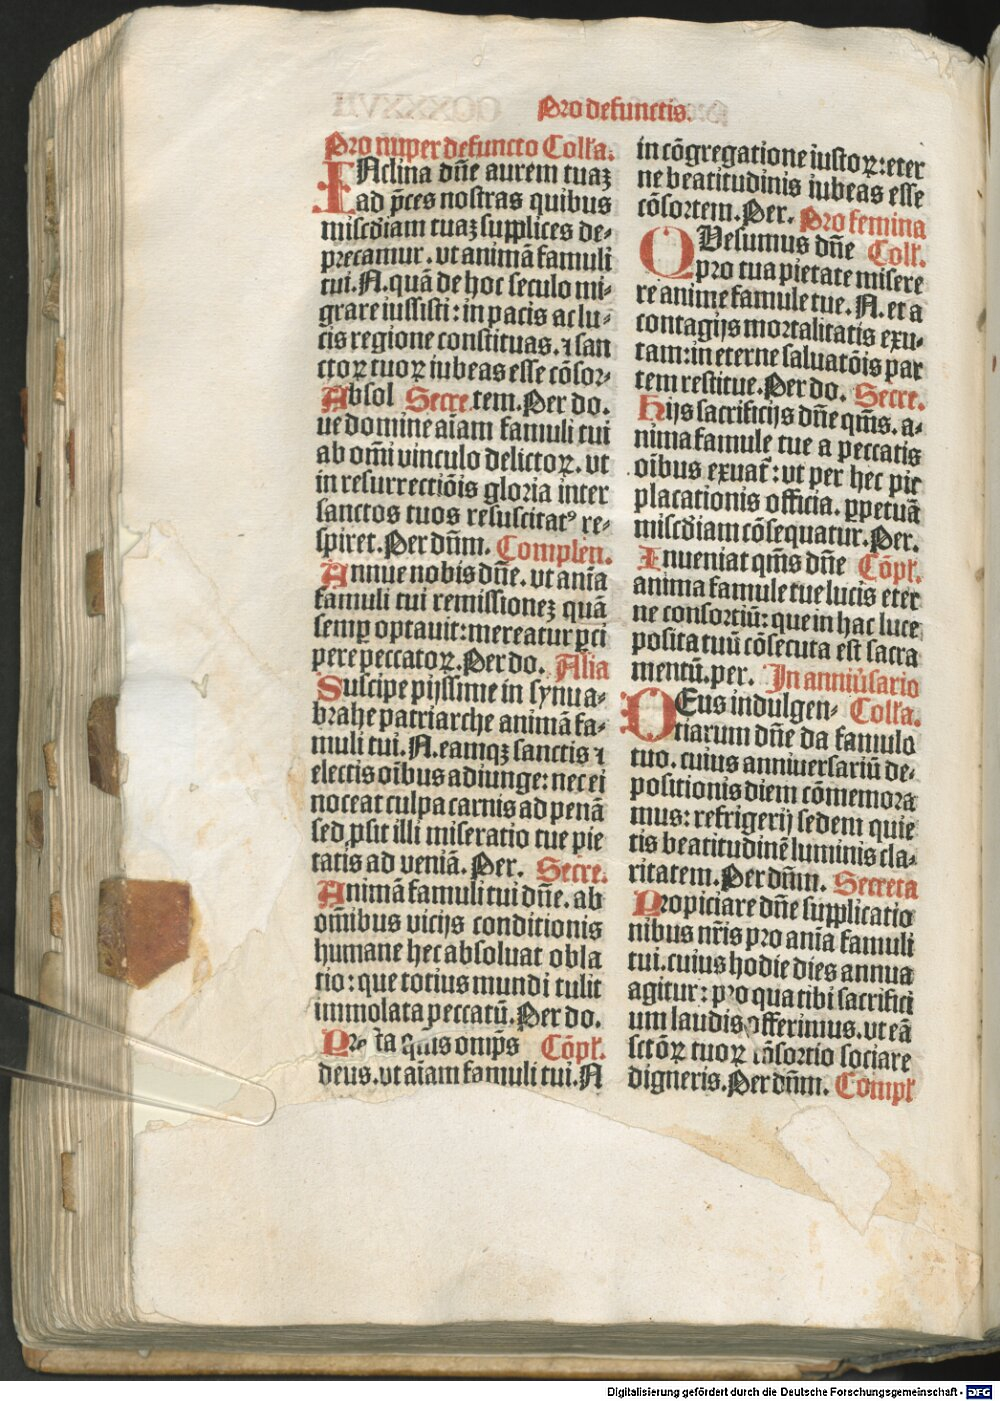 Pro defunctis.
Pro nuper defuncto Coll'a.
INclina dn̄e aurem tuaꝫ
ad p̄ces nostras quibus
misc̄diam tuaꝫ supplices de⸗
precamur. vt animā famuli
tui. N. quā de hoc seculo mi⸗
grare iussisti: in pacis ac lu⸗
cis regione constituas. ⁊ san
ctoꝝ tuoꝝ iubeas esse cōsor⸗
tem. Per do. Secre.
Absol
ue domine aīam famuli tui
ab om̄i vinculo delictoꝝ. vt
in resurrectiōis gloria inter
sanctos tuos resuscitatꝰ re⸗
spiret. Per dn̄m. Complen.
Annue nobis dn̄e. vt anīa
famuli tui remissioneꝫ quā
semꝑ optauit: mereatur ꝑci
pere peccatoꝝ. Per do. Alia
Suscipe pijssime in synu a⸗
brahe patriarche animā fa⸗
muli tui. N. eamqꝫ sanctis ⁊
electis oībus adiunge: nec ei
noceat culpa carnis ad penā
sed ꝓsit illi miseratio tue pie
tatis ad veniā. Per. Secre.
Animā famuli tui dn̄e. ab
om̄ibus vicijs conditionis
humane hec absoluat obla
tio: que totius mundi tulit
immolata peccatū. Per do.
Pre ta qm̄s omp̄s Cōpl'.
deus. vt aīam famuli tui. N
in cōgregatione iustoꝝ: eter
ne beatitudinis iubeas esse
cōsortem. Per. Pro femina
QVesumus dn̄e Coll'.
pro tua pietate misere
re anime famule tue. N. et a
contagijs mortalitatis exu⸗
tam: in eterne saluatōis par
tem restitue. Per do. Secre.
Hijs sacrificijs dn̄e qm̄s. a⸗
nima famule tue a peccatis
oībus exuat': vt per hec pie
placationis officia. ꝑpetuā
misc̄diam cōsequatur. Per.
Inueniat qm̄s dn̄e Cōpl'.
anima famule tue lucis eter
ne consortiū: que in hac luce
posita tuū cōsecuta est sacra
mentū. per. In anniu̓sario
DEus indulgen⸗ Coll'a.
tiarum dn̄e da famulo
tuo. cuius anniuersariū de⸗
positionis diem cōmemora
mus: refrigerij sedem quie
tis beatitudinē luminis cla⸗
ritatem. Per dn̄m. Secreta
Propiciare dn̄e supplicatio
nibus nr̄is pro anīa famuli
tui. cuius hodie dies annua
agitur: pro qua tibi sacrifici
um laudis offerimus. vt eā
sctōꝝ tuoꝝ cōsortio sociare
digneris. Per dn̄m. Compl'
Digitalisierung gefördert durch die Deutsche Forschungsgemeinschaft - DFG